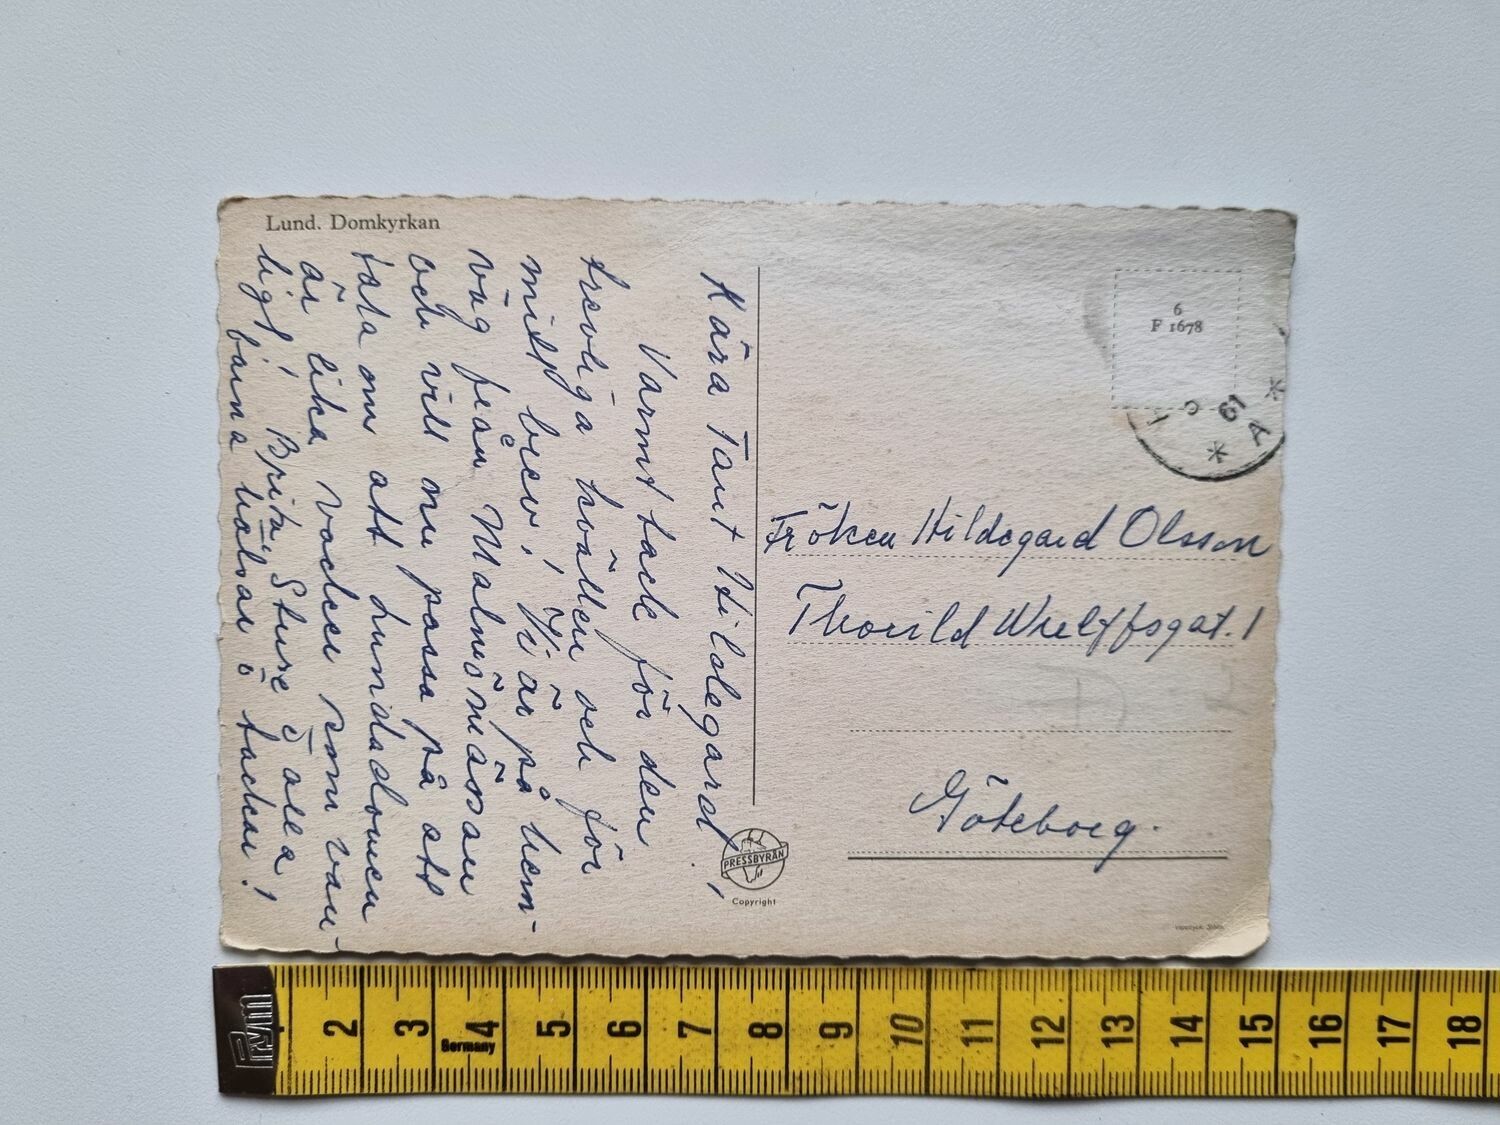 Lund. Domkyrkan
Kära Tant Hildegard!
Varmt tack för den
trevliga kvällen och för
mitt brev! Vi är på hem-
väg från Malmömässan
och vill nu passa på att
tala om att Lundadomen
är lika vacker som van-
ligt! Brita, Sture o alla
barna hälsar o tackar!
6
F 1678
61
* A *
Fröken Hildegard Olsson
Thorild Wulffsgat. 1
Göteborg.
PRESSBYRÅN
Copyright
2 3 4 5 6 7 8 9 10 11 12 13 14 15 16 17 18
Germany